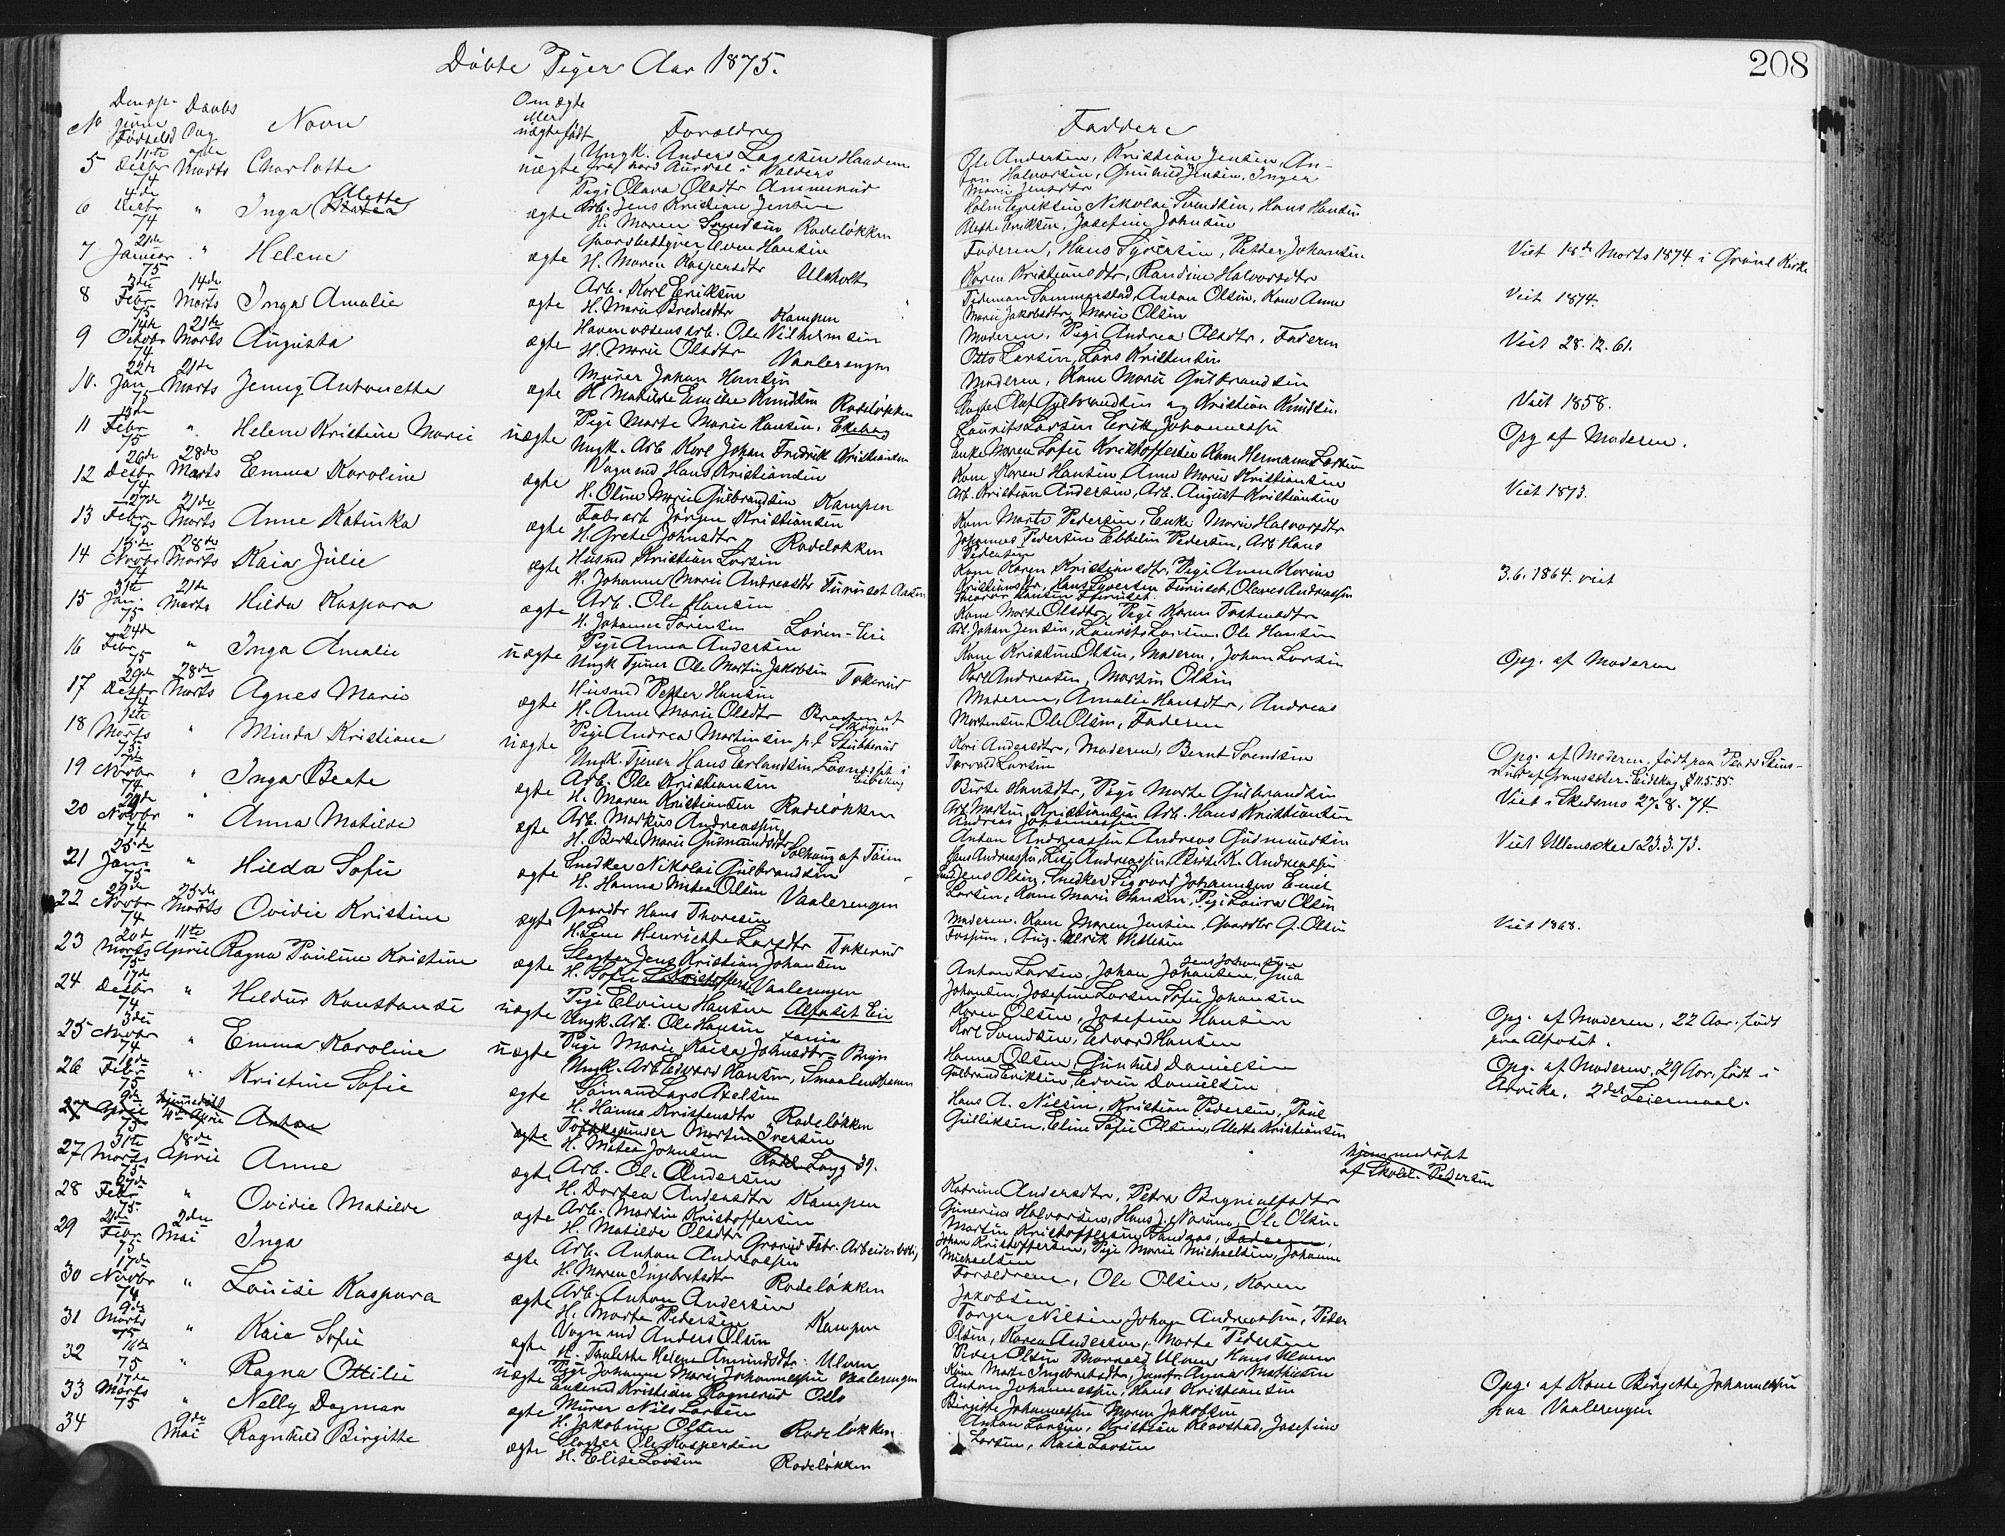 Døbte Piger Aar 1875.
208
No
Den op-
givne
Fødselsd
Daabs
Dag
Navn
Om ægte
eller
uægte født
Forældre
Faddere
5 11te Desbr 74 Marts Charlotte uægte Ungk. Anders
Pige Olava Olsdtr Ammerud
Ole Andersen, Kristian Jensen, An-
ton Halvorsen, Gunhild Jensen, Inger
Marie Jensdtr
6 4de Desbr 74 " Inga Alette ægte Arb. Jens Kristian Jensen
H. Maren Svendsen Rodeløkken
Nikolai Svendsen, Hans Hansen
Alette Eriksen, Josefine Johnsen
7 21de Januar 75 " Helene ægte Gaardbestyrer Even Hansen
H. Maren Kaspersdtr Ulsholt
Faderen, Hans Syversen, Petter Johansen
Karen Kristiansdtr, Randine Halvorsdtr
Viet 18de Marts 1874 i Grønl Kirke
8 3die Febr 75 14de Marts Inga Amalie ægte Arb. Karl Eriksen
H. Maria Bredesdtr Kampen
Anton Olsen, Kone Anne
Marie Jakobsdtr, Marie Olsen
Viet 1874.
9 14de Octobr 74 21de Marts Augusta ægte Havnevæsens arb. Ole Vilhelmsen
H. Marie Olsdtr Vaalerengen
Moderen, Pige Andrea Olsdtr, Faderen
Otto Larsen, Lars Kristensen
Viet 28.12.61.
10. 22de Jan 75 21de Marts Jenny Antonette ægte Murer Johan Hansen
H. Matilde Emilie Knudsen Rodeløkken
Moderen, Kone Marie Gulbrandsen
Slagter Olaf Gulbrandsen og Kristian Knudsen
Viet 1858.
11 13de Febr 75 " Helene Kristine Marie uægte Pige Marte Marie Hansen, Ekeberg
Ungk. Arb Karl Johan Fredrik Kristiansen
Laurits Larsen Erik Johannessen
Enke Maren Sofie Kristoffersen Kone Hermanna Larsen
Opg af Moderen.
12 26de Desbr 74 28de Marts Emma Karoline ægte Vognmd Hans Kristiansen
H. Oline Marie Gulbrandsen Kampen
Kone Karen Hansen Anne Marie Kristiansen
Arb. Kristian Andersen, Arb. August Kristiansen
Viet 1873.
13 27de Febr 75 21de Marts Anne Katinka ægte Fabr arb Jørgen Kristiansen
H. Grete Johnsdtr Rodeløkken
Kone Marte Pedersen, Enke Marie Halvorsdtr
Johannes Pedersen Ebbelin Pedersen, Arb Hans
Pedersen
14 Novbr 74 28de Marts Kaia Julie ægte Husmd Kristian Larsen
H. Johanne Marie Andreasdtr Furuset
Kone Karen Kristiansdtr, Pige Anne Karine
Kristiansdtr, Hans Syversen Furuset, Olaves Andreassen
Hansen Furuset.
3.6.1864. viet
15 31te Jan. 75 21de Marts Hilda Kaspara ægte Arb. Ole Hansen
H. Johanne Sørensen Løren-Eie
Kone Marte Olsdtr, Pige Karen Torstensdtr
Arb. Johan Jensen, Laurits Larsen, Ole Hansen
16 24de Febr 75 " Inga Amalie uægte Pige Anna Andersen
Ungk Tjener Ole Martin Jakobsen Tokerud
Kone Kristine Olsen, Moderen, Johan Larsen
Karl Andreasen, Martin Olsen
Opg. af Moderen
17 29de Desbr 74 28de Marts Agnes Marie ægte Husmd Petter Hansen
H. Anne Marie Olsdtr Braaten af
Skøyen
Moderen, Amalie Hansdtr, Andreas
Mortensen, Ole Olsen, Faderen
18 1ste Marts 75 " Minda Kristiane uægte Pige Andrea Martinsen p.t Stubberud
Ungk. Tjener Hans Erlandsen
Kari Andersdtr, Moderen, Bernt Svendsen
Torvald Larsen
Opg. af Moderen, født paa
Eidskog, 11.5.55.
19 Novbr 74 " Inga Beate ægte Arb. Ole Kristiansen
H. Maren Kristiansen Rodeløkken
Birte Hansdtr, Pige Marte Gulbrandsen
Arb. Martin Kristiansen, Arb. Hans Kristiansen
Viet i Skedsmo 27.8.74.
20 Novbr 74 " Anna Matilde ægte Arb. Markus Andreassen
H. Berte Marie Gudmundsdtr Solhaug af Tøien
Andreas Johannessen
Anton Andreassen Andreas Gudmundsen
Viet Ullensaker 23.3.73.
21 25de Jan. 75 " Hilda Sofie ægte Snedker Nikolai Gulbrandsen
H. Hanna Mutea Olsen Vaalerengen
Jens Olsen, Snedker Sigvard Johannsen Emil
Larsen, Kone Marie Hansen, Pige Laura Olsen
22 29de Novbr 74 25de Marts Ovidie Kristine ægte Gaardbr Hans Thoresen
H. Lene Henriette Larsdtr Tokerud
Moderen. Kone Maren Jensen, Gaardbr G. Olsen
Fossum, Aug. Ulrik
Viet 1868.
23 20de Marts 75 11te April Ragna Pauline Kristine ægte Slagter Jens Kristian Johansen
H. Sofie Kristoffersen Vaalerengen
Anton Larsen, Johan Johansen, Gina
Johansen, Josefine Larsen Sofie Johansen
24 17de Desbr 74 " Hildur Konstanse uægte Pige Elvine Hansen Alfaset Eie
Ungk. Arb. Ole Hansen
Karen Olsen, Josefine Hansen
Karl Svendsen, Edvard Hansen
Opg. af Moderen, 22 Aar, født
paa Alfaset.
25 3die Novbr 74 " Emma Karoline uægte Pige Marie Kaisa Johnsdtr
Ungk. Arb Edvard Hansen, Smaalenene
Hanna Olsen Gunhild Danielsen
Gulbrand Eriksen, Edvin Danielsen
Opg. af Moderen, 29 Aar, født i
Arvika. 2det Leiermaal.
26 18de Febr 75 " Kristine Sofie ægte Sømand Lars Axelsen
H. Hanna Kristensdtr Rodeløkken
Hans A. Nilsen, Kristian Pedersen, Paul
Gulliksen, Eline Sofie Olsen, Alette Kristiansen
27 April 75 hjemmedøbt April Anton ægte Martin Iversen
H. Matea Johnsen
hjemmedøbt
af Skolel. Pedersen
27 31te Marts 75 18de April Anne ægte Arb. Ole Andersen
H. Dortea Andersdtr Kampen
Katrine Andersdtr, Petra Brynialfsdtr
Gunerius Halvorsen, Hans J. Narum, Ole Olsen
28 Febr 75 " Ovidie Matilde ægte Arb. Martin Kristoffersen
H. Matilde Olsdtr Grorud Fabr. Arbeiderbolig
Martin Kristoffersen Sandaas, Faderen,
Johan Kristoffersen, Pige Marie Michaelsen, Johanne
Michaelsen
29 Febr 75 2den Mai Inga ægte Arb. Anton Andreassen
H. Maren Ingebretsdtr Rodeløkken
Forældrene, Ole Olsen, Karen
Jakobsen
30 17de Novbr 74 " Louise Kaspara ægte Arb. Anton Andersen
H. Marte Pedersen Kampen
Torger Nilsen Johan Andreassen, Peter
Olsen, Karen Andersen, Marte Pedersen
31 9de Marts 75 " Kaia Sofie ægte Vognmd Anders Olsen
H. Paulette Helene Amundsdtr. Ulven
Peder Olsen Thorvald Ulven Hans Ulven
Kone Marte Ingebretsdtr, Jomfr. Anna Mathiesen
32 16de 75 " Ragna Ottilie uægte Pige Johanne Marie Johannessen Vaalerengen
Kristian Ragnerud Oslo
Anton Johannessen, Hans Kristiansen
Birgitte Johannessen Maren Jakobsen
Opg. af Kone Birgitte Johannessen
paa Vaalerengen
33 17de Marts 75 " Nelly Dagmar ægte Murer Nils Larsen
H. Jakobine Olsen Rodeløkken
34 9de Mai Ragnhild Birgitte ægte Slagter Ole Kaspersen
H. Elise Larsen Rodeløkken
Anton Larsen, Kristian Raastad, Josefine
Larsen, Kaia Larsen